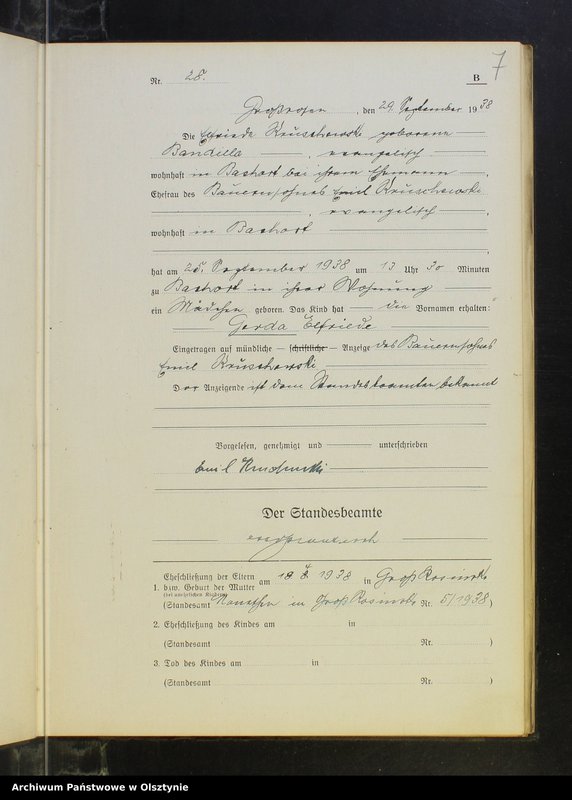 7
Nr. 28. B
Großrosen, den 29. September 1938
Die Elfriede Kruschewski geborene
Bandilla, evangelisch
wohnhaft in Bachort bei ihrem Ehemann,
Ehefrau des Bauernsohnes Emil Kruschewski
, evangelisch,
wohnhaft in Bachort
hat am 25. September 1938 um 13 Uhr 30 Minuten
zu Bachort in ihrer Wohnung
ein Mädchen geboren. Das Kind hat die Vornamen erhalten:
Gerda Elfriede
Eingetragen auf mündliche — schriftliche — Anzeige des Bauernsohnes
Emil Kruschewski
Der Anzeigende ist dem Standesbeamten bekannt
Vorgelesen, genehmigt und unterschrieben
Emil Kruschewski
Der Standesbeamte
Eheschließung der Eltern
1. bzw. Geburt der Mutter am 1938 in Groß Rosinsko
(bei unehelichen Kindern)
(Standesamt in Groß Rosinsko Nr. 5/1938)
2. Eheschließung des Kindes am in
(Standesamt Nr. )
3. Tod des Kindes am in
(Standesamt Nr. )
Archiwum Państwowe w Olsztynie